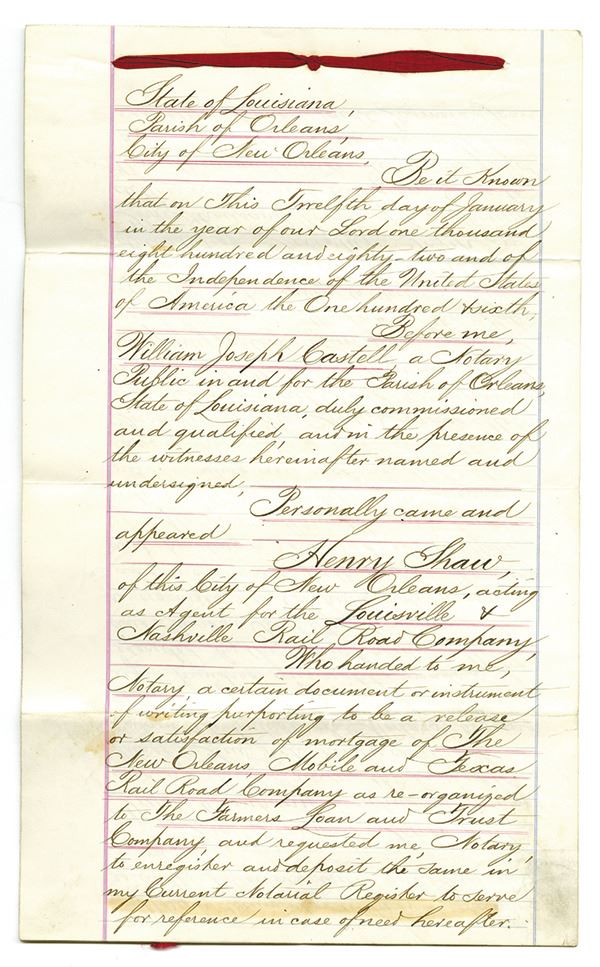 State of Louisiana,
Parish of Orleans,
City of New Orleans,
Be it Known
that on This Twelfth day of January
in the year of our Lord one thousand
eight hundred and eighty-two and of
the Independence of the United States
of America the One hundred & sixth,
Before me,
William Joseph Castell a Notary
Public in and for the Parish of Orleans,
State of Louisiana, duly commissioned
and qualified, and in the presence of
the witnesses hereinafter named and
undersigned,
Personally came and
appeared
Henry Shaw,
of this City of New Orleans, acting
as Agent for the Louisville &
Nashville Rail Road Company,
Who handed to me,
Notary, a certain document or instrument
of writing purporting to be a release
or satisfaction of mortgage of The
New Orleans, Mobile and Texas
Rail Road Company as re-organized
to The Farmers Loan and Trust
Company, and requested me, Notary,
to enregister and deposit the same in
my Current Notarial Register to serve
for reference in case of need hereafter.